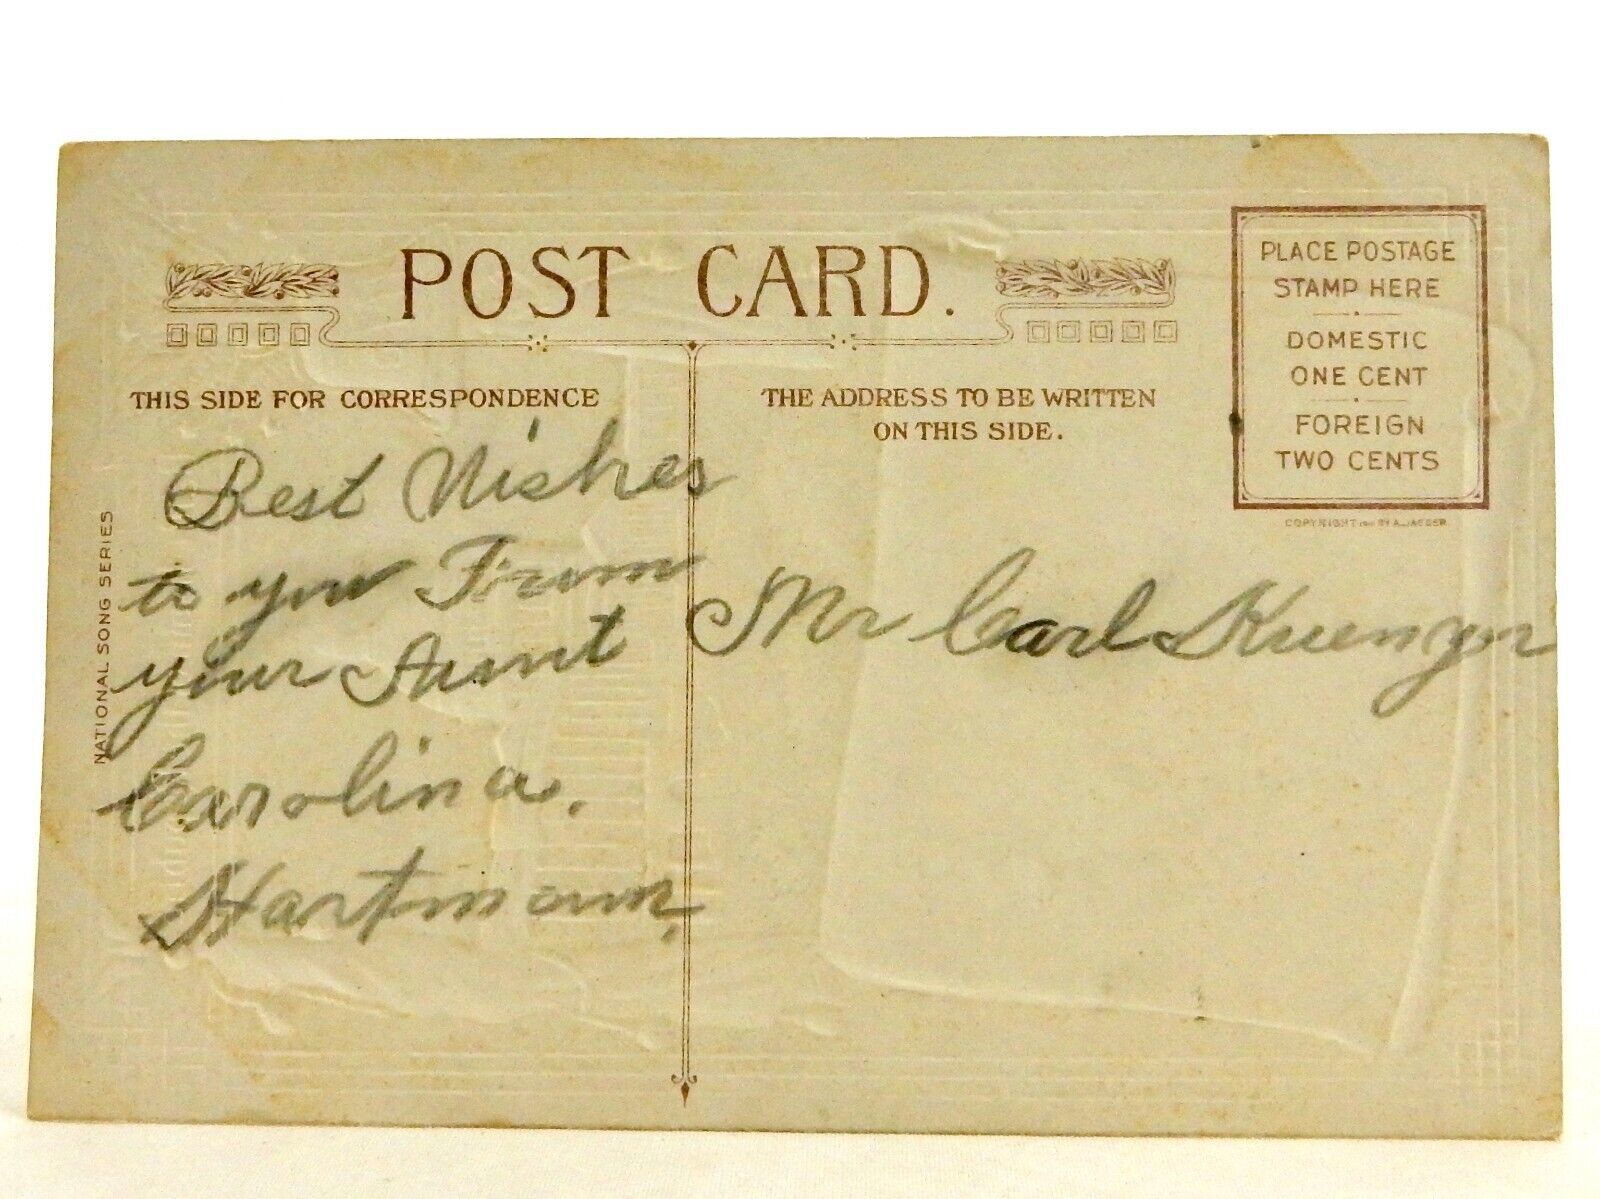 POST CARD.
THIS SIDE FOR CORRESPONDENCE
Best Wishes
to you From
your Aunt
Carolina.
Hartmann.
THE ADDRESS TO BE WRITTEN
ON THIS SIDE.
Mr Carl
PLACE POSTAGE
STAMP HERE
DOMESTIC
ONE CENT
FOREIGN
TWO CENTS
COPYRIGHT BY A. JAEGER
NATIONAL SONG SERIES